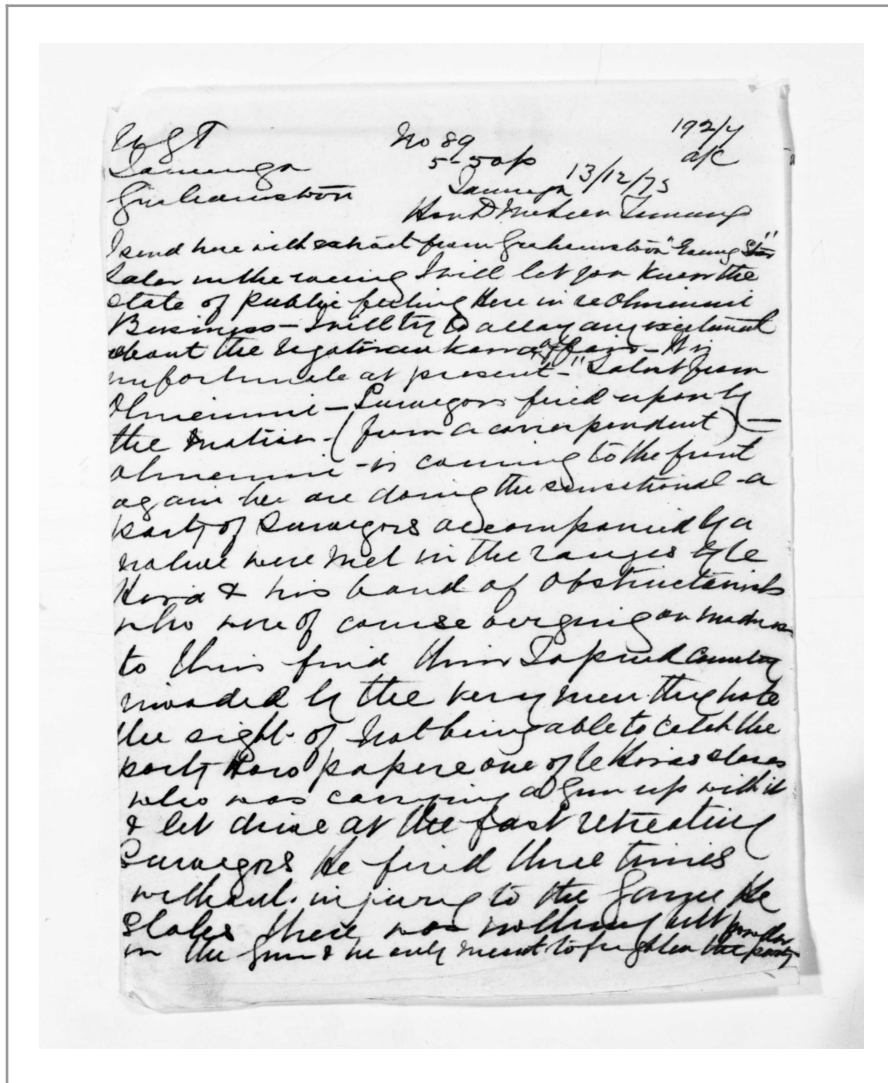 NZT No 89 192/4
Tauranga 5-50p a/c
Grahamstown Tauranga 13/12/75
Hon D McLean Timaru
I send herewith extract from Grahamstown "Evening Star"
Later in the evening I will let you know the
state of public feeling here in re Ohinemuri
Business - I will try to allay any excitement
about the affair - It is
unfortunate at present - "Latest from
Ohinemuri - Surveyors fired upon by
the Natives - (from a correspondent) -
Ohinemuri - is coming to the front
again we are doing the sensational - a
party of Surveyors accompanied by a
native were met in the ranges by Te
Hira & his band of obstructionists
who were of course verging on madness
to thus find their Tapued Country
invaded by the very men they hate
the sight of Not being able to catch the
party one of Te Hiras slaves
who was carrying a Gun up with it
& let drive at the fast retreating
Surveyors He fired three times
without injury to the Game He
states there was nothing but powder
in the Gun & he only meant to frighten the party